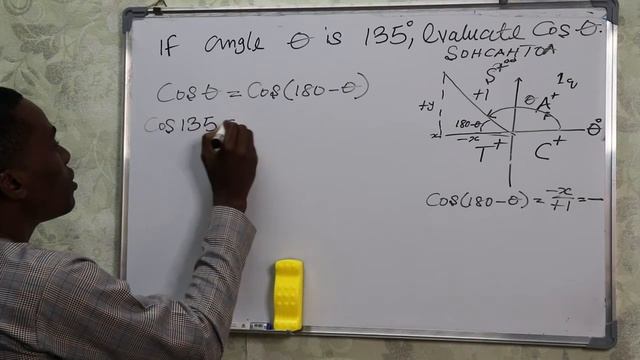 If angle θ is 135°, evaluate Cos θ.
SOHCAHTOA
Cos θ = Cos(180 - θ)
Cos 135 =
S+
+1
θ
A+
+y
180-θ
θ°
x
-x
T+
C+
Cos(180 - θ) = -x/+1 = -